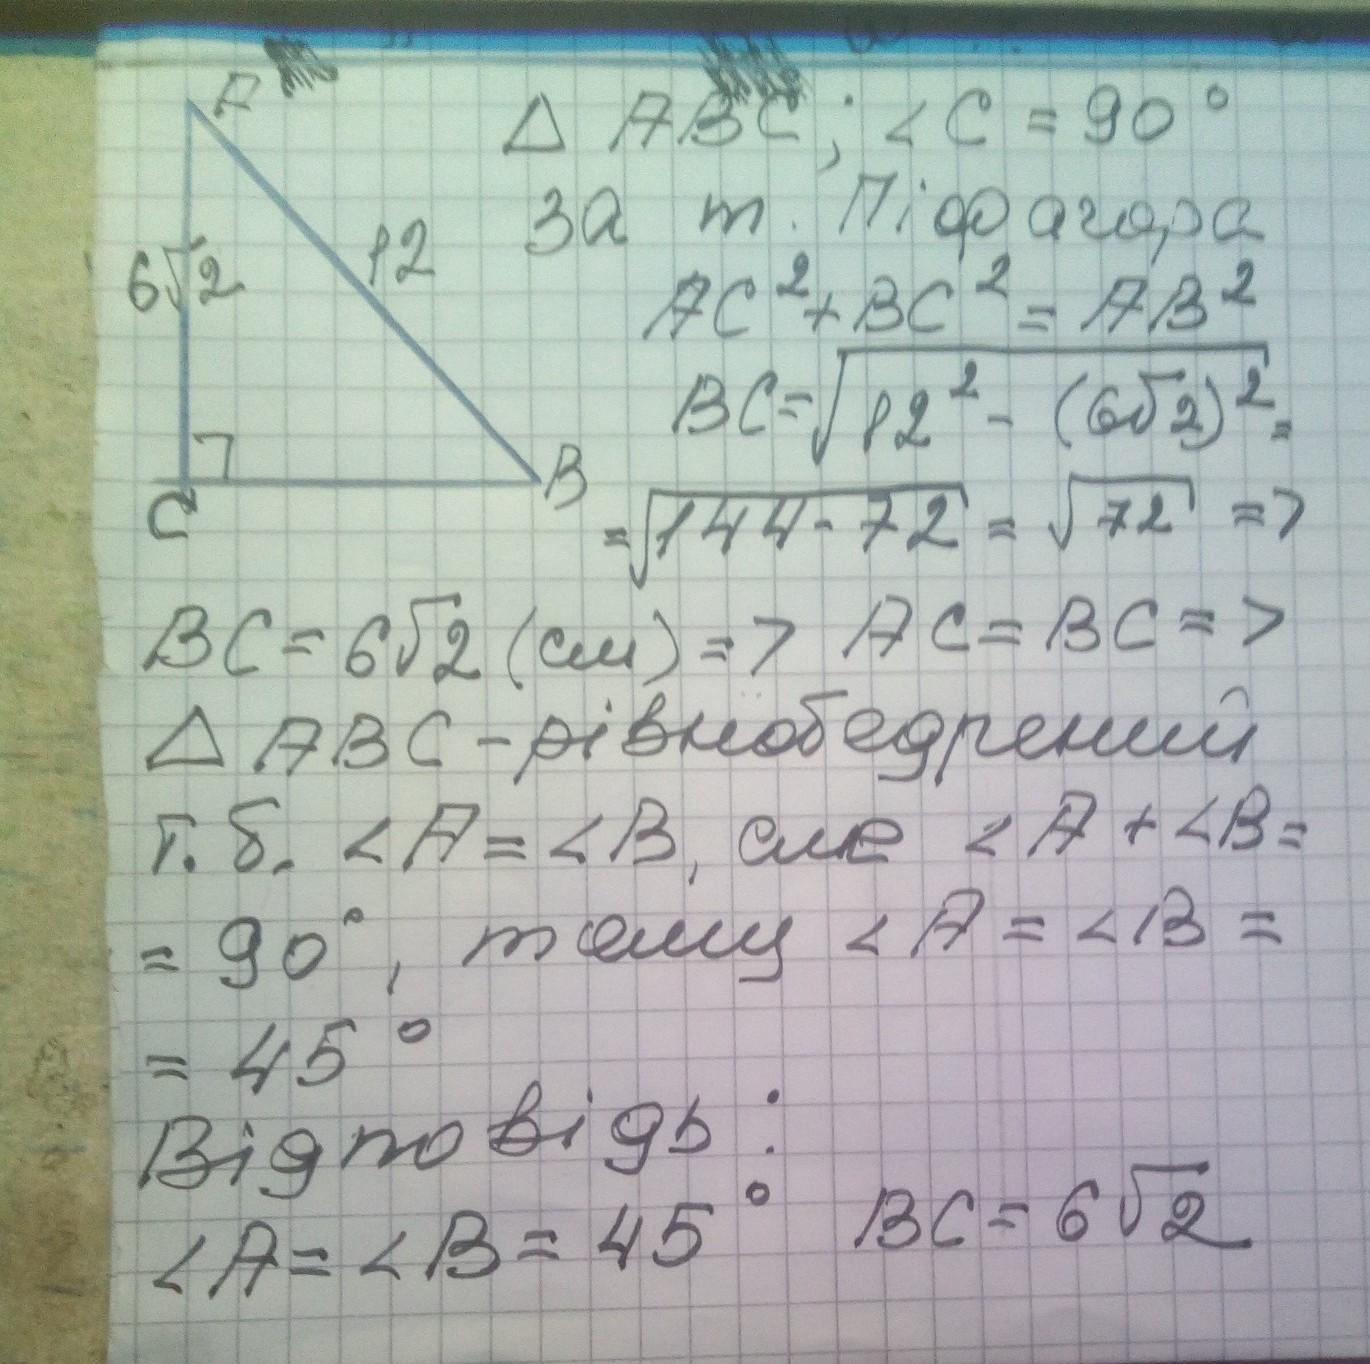 A
Δ ABC; ∠C = 90°
За т. Піфагора
6√2
12
AC² + BC² = AB²
BC = √(12² - (6√2)²) =
C
B
= √(144 - 72) = √72 =>
BC = 6√2 (см) => AC = BC =>
Δ ABC - рівнобедрений
т. б. ∠A = ∠B, але ∠A + ∠B =
= 90°, тому ∠A = ∠B =
= 45°
Відповідь:
∠A = ∠B = 45° BC = 6√2